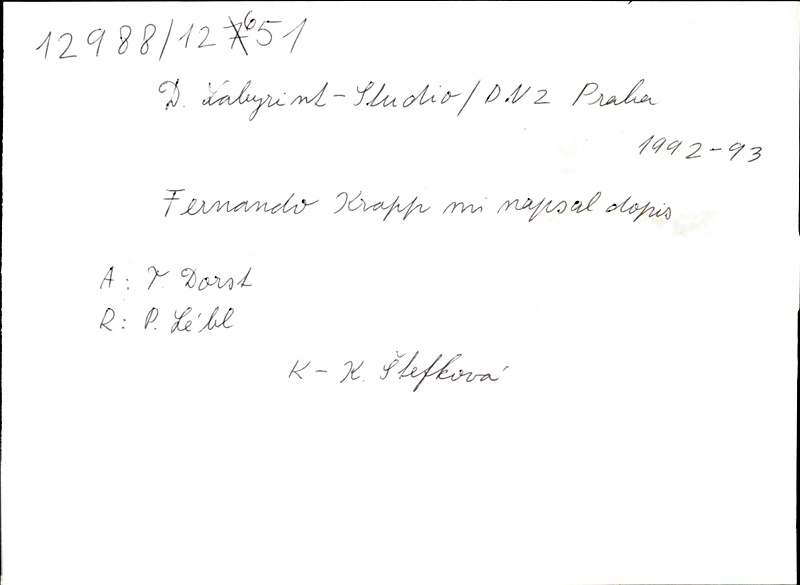 12988/12 651
D. Labyrint - Studio / D.N2 Praha
1992-93
Fernando Krapp mi napsal dopis
A: T. Dorst
R: P. Lébl
K - K. Štefková